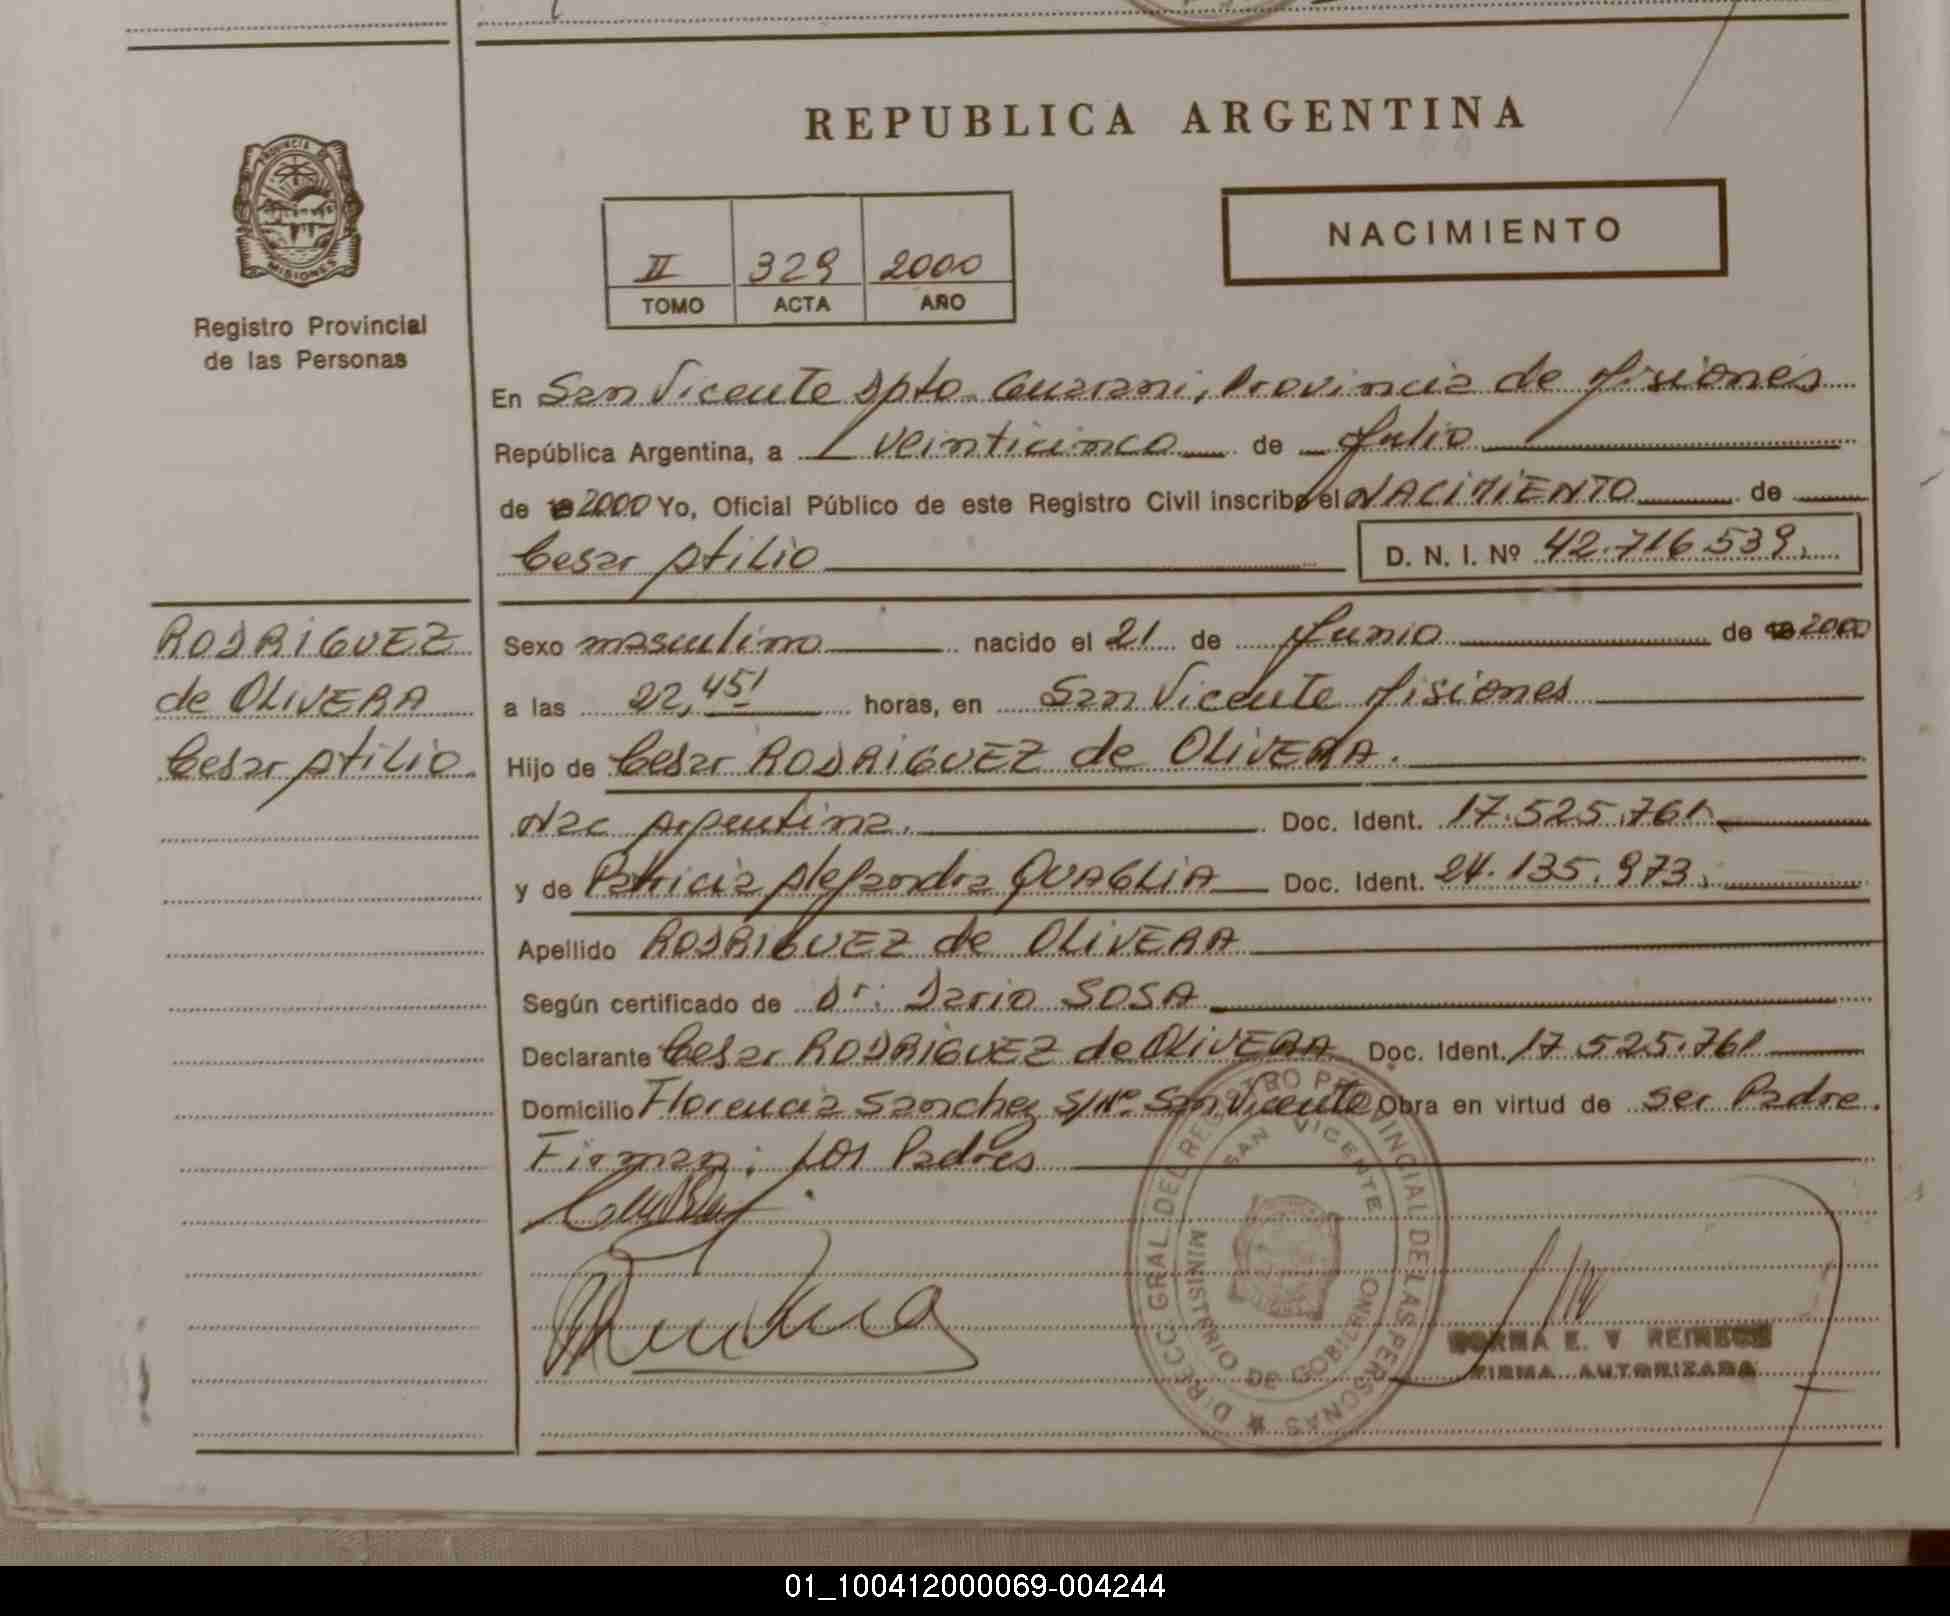 REPUBLICA ARGENTINA
PROVINCIA DE
MISIONES
Registro Provincial
de las Personas
NACIMIENTO
II 329 2000
TOMO ACTA AÑO
En San Vicente Dpto. Guarani, Provincia de Misiones
República Argentina, a veinticinco de Julio
de 2000 Yo, Oficial Público de este Registro Civil inscribo el NACIMIENTO de
Cesar Atilio D. N. I. Nº 42.716.539.
RODRIGUEZ
de OLIVERA
Cesar Atilio.
Sexo masculino nacido el 21 de Junio de 2000
a las 22,45' horas, en San Vicente Misiones
Hijo de Cesar RODRIGUEZ de OLIVERA.
Nac Argentina. Doc. Ident. 17.525.761
y de Patricia Alejandra QUAGLIA Doc. Ident. 24.135.973.
Apellido RODRIGUEZ de OLIVERA
Según certificado de Dr. Dario SOSA
Declarante Cesar RODRIGUEZ de OLIVERA Doc. Ident. 17.525.761
Domicilio Florencia Sanchez S/Nº San Vicente Obra en virtud de ser Padre.
Firman: Los Padres
DIRECC. GRAL. DEL REGISTRO PROVINCIAL DE LAS PERSONAS
SAN VICENTE
MINISTERIO DE GOBIERNO
NORMA E. V. REINECK
FIRMA AUTORIZADA
01_100412000069-004244